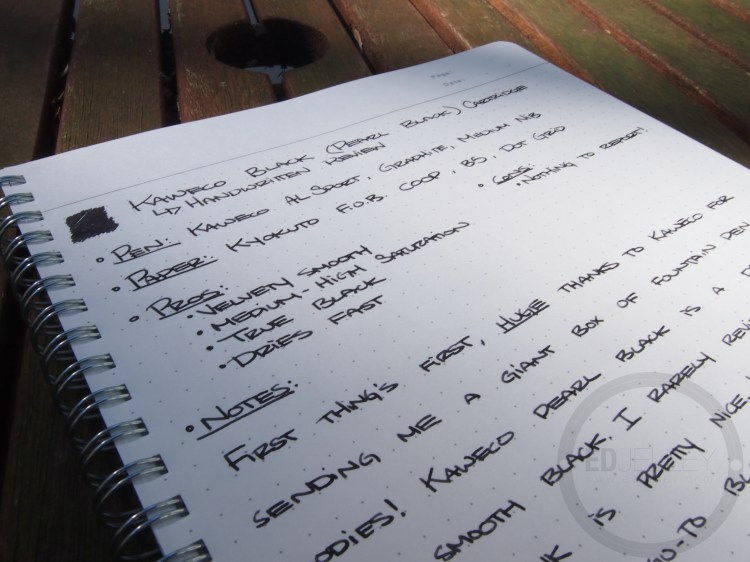 Page:
Date:
KAWECO BLACK (PEARL BLACK) CARTRIDGE
↳ HANDWRITTEN REVIEW
• PEN: KAWECO AL SPORT, GRAPHITE, MEDIUM NIB
• PAPER: KYOKUTO F.O.B. COOP, B5, DOT GRID
• PROS:
• VELVEN SMOOTH
• MEDIUM-HIGH SATURATION
• TRUE BLACK
• DRIES FAST
• CONS:
• NOTHING TO REPORT!
• NOTES:
FIRST THING'S FIRST, HUGE THANKS TO KAWECO FOR
SENDING ME A GIANT BOX OF FOUNTAIN PEN
OODIES! KAWECO PEARL BLACK IS A
SMOOTH BLACK. I RARELY
IS PRETTY NICE.
GO-TO
EDJELLEY